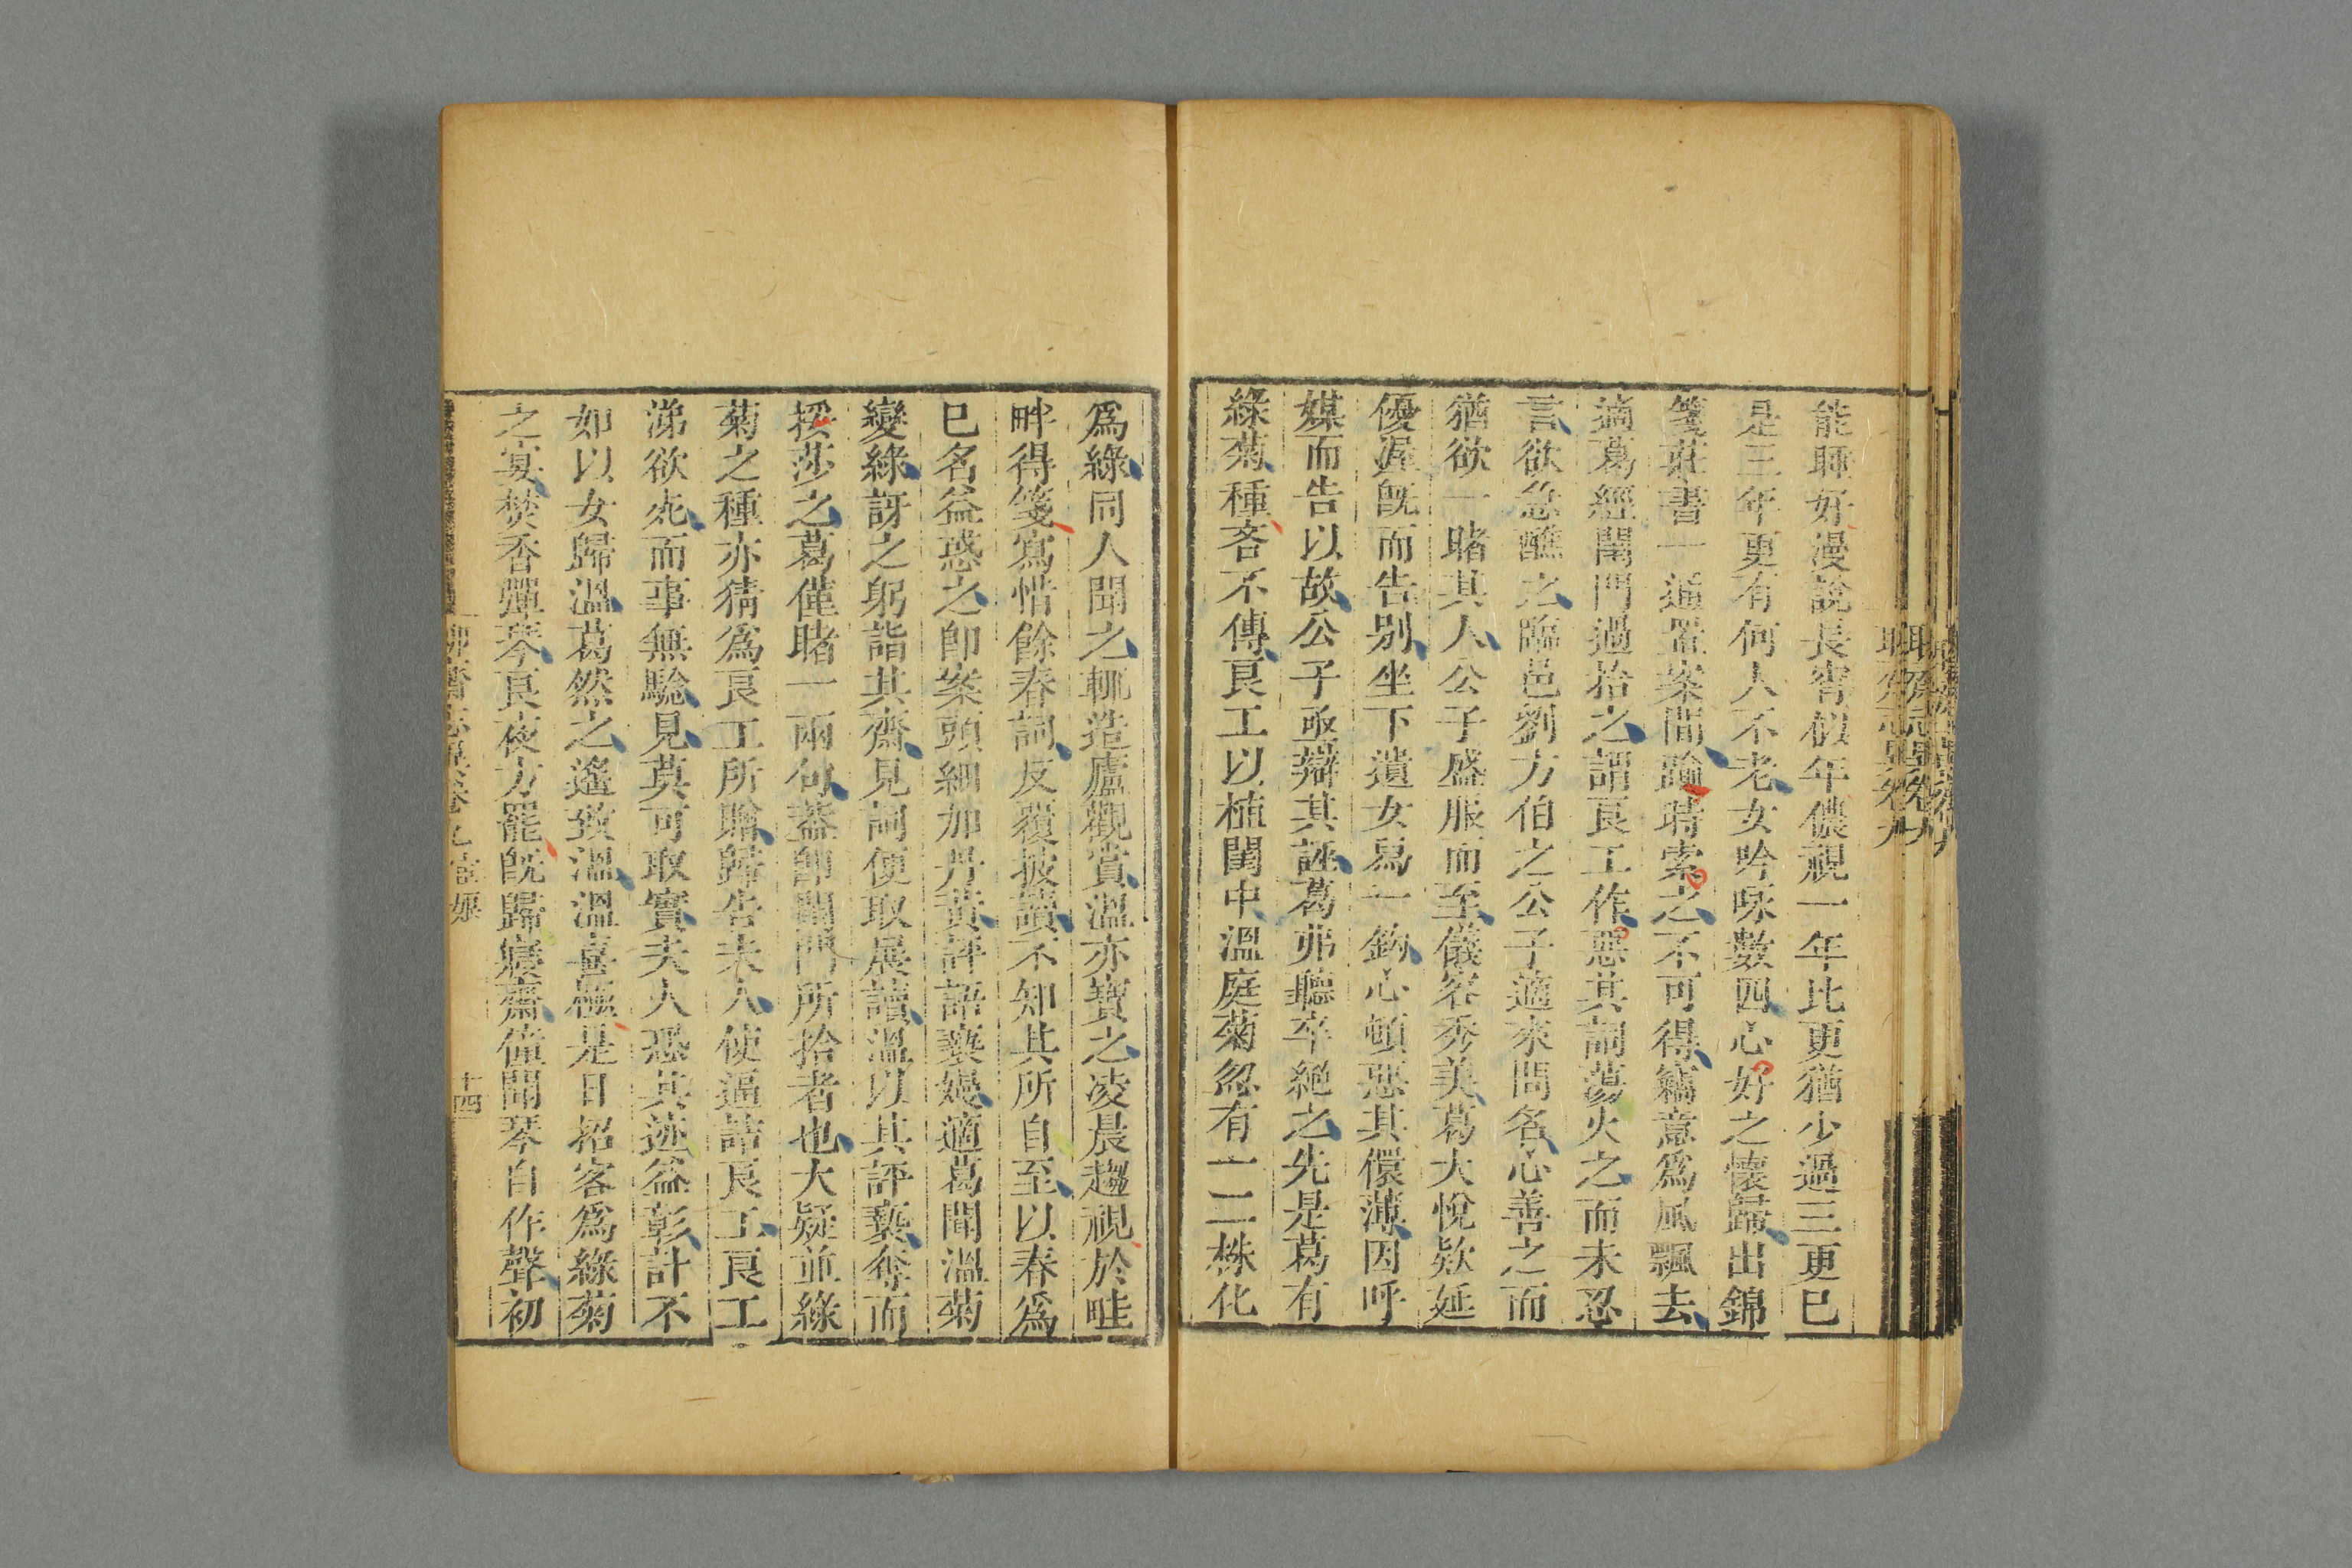 能睡好漫說長宵似年儂視一年比更猶少過三更已
是三年更有何人不老女吟咏數四心好之懷歸出錦
箋莊書一通置案間踰時索之不可得竊意為風飄去
適葛經閨門過拾之謂良工作惡其詞蕩火之而未忍
言欲急醮之臨邑劉方伯之公子適來問名心善之而
猶欲一睹其人公子盛服而至儀容秀美葛大悅欵延
優渥旣而告别坐下遺女舃一鈎心頓惡其儇薄因呼
媒而告以故公子亟辯其誣葛弗聽卒絕之先是葛有
綠菊種吝不傳良工以植閨中溫庭菊忽有一二株化
爲綠同人聞之輒造廬觀賞溫亦寳之凌晨趨視於畦
畔得箋寫惜餘春詞反覆披讀不知其所自至以春爲
已名益惑之卽案頭細加丹黄評語褻嫚適葛聞溫菊
變綠訝之躬詣其齋見詞便取展讀溫以其評褻奪而
挼莎之葛僅睹一兩句葢卽閨門所拾者也大疑並綠
菊之種亦猜爲良工所贈歸告夫人使逼詰良工良工
涕欲死而事無驗見莫可取實夫人恐其迹益彰計不
如以女歸溫葛然之遙致溫溫喜極是日招客爲綠菊
之宴焚香彈琴良夜方罷旣歸寢齋僮聞琴自作聲初
十四